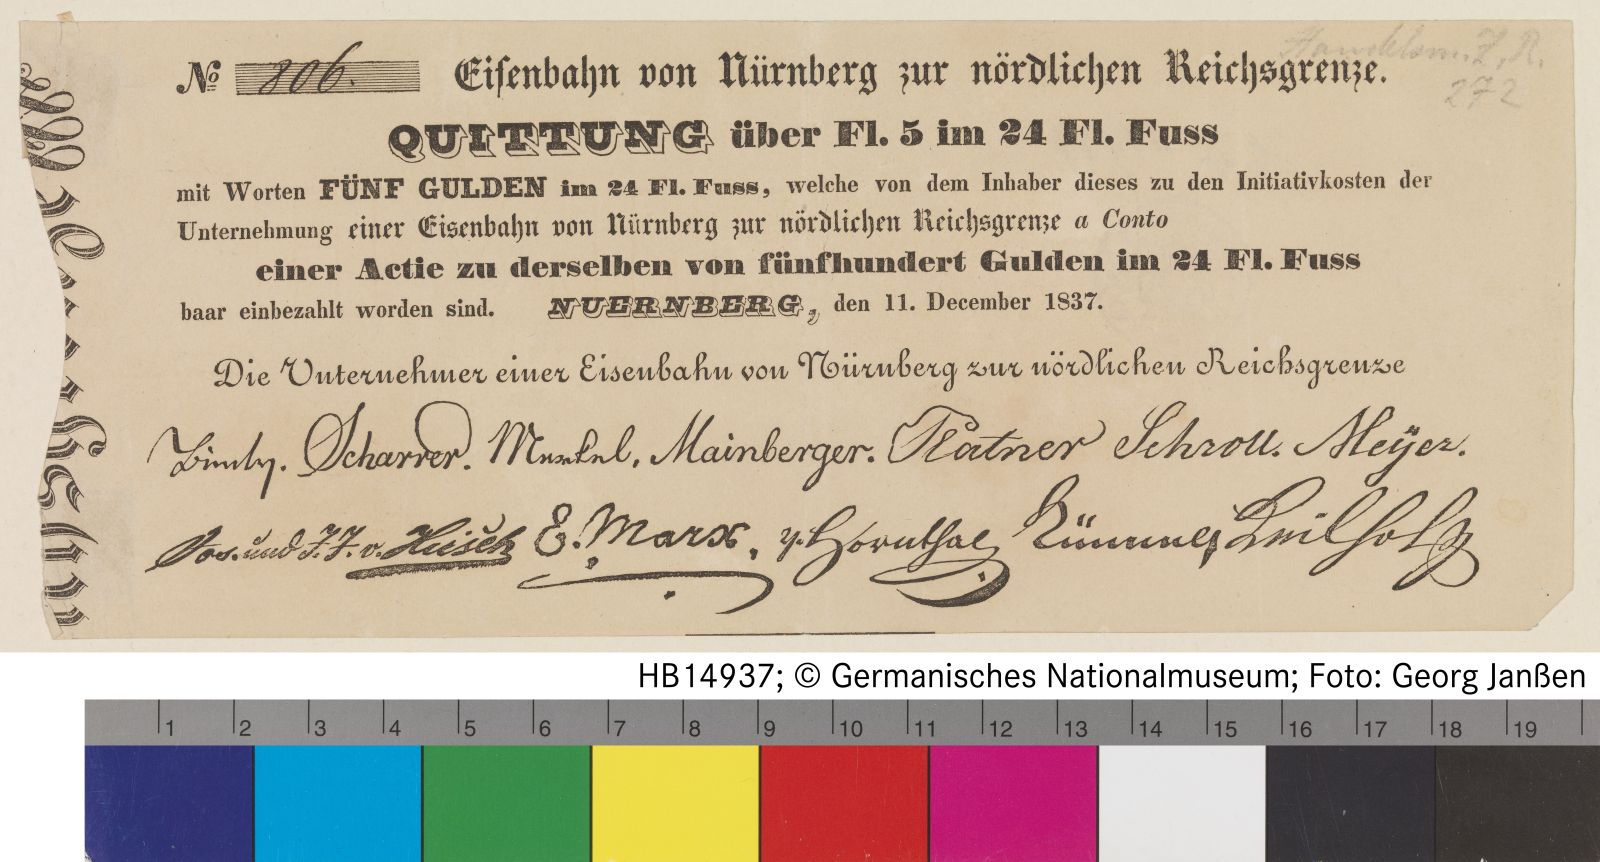 № 806. Eisenbahn von Nürnberg zur nördlichen Reichsgrenze.
QUITTUNG über Fl. 5 im 24 Fl. Fuss
mit Worten FÜNF GULDEN im 24 Fl. Fuss, welche von dem Inhaber dieses zu den Initiativkosten der
Unternehmung einer Eisenbahn von Nürnberg zur nördlichen Reichsgrenze a Conto
einer Actie zu derselben von fünfhundert Gulden im 24 Fl. Fuss
baar einbezahlt worden sind. NUERNBERG, den 11. December 1837.
Die Unternehmer einer Eisenbahn von Nürnberg zur nördlichen Reichsgrenze
Scharrer. Merkel. Mainberger. Platner Schroll. Meyer.
Jos. und J. J. v. Hirsch E. Marx. v. Hornthal
272
HB14937; © Germanisches Nationalmuseum; Foto: Georg Janßen
1 2 3 4 5 6 7 8 9 10 11 12 13 14 15 16 17 18 19